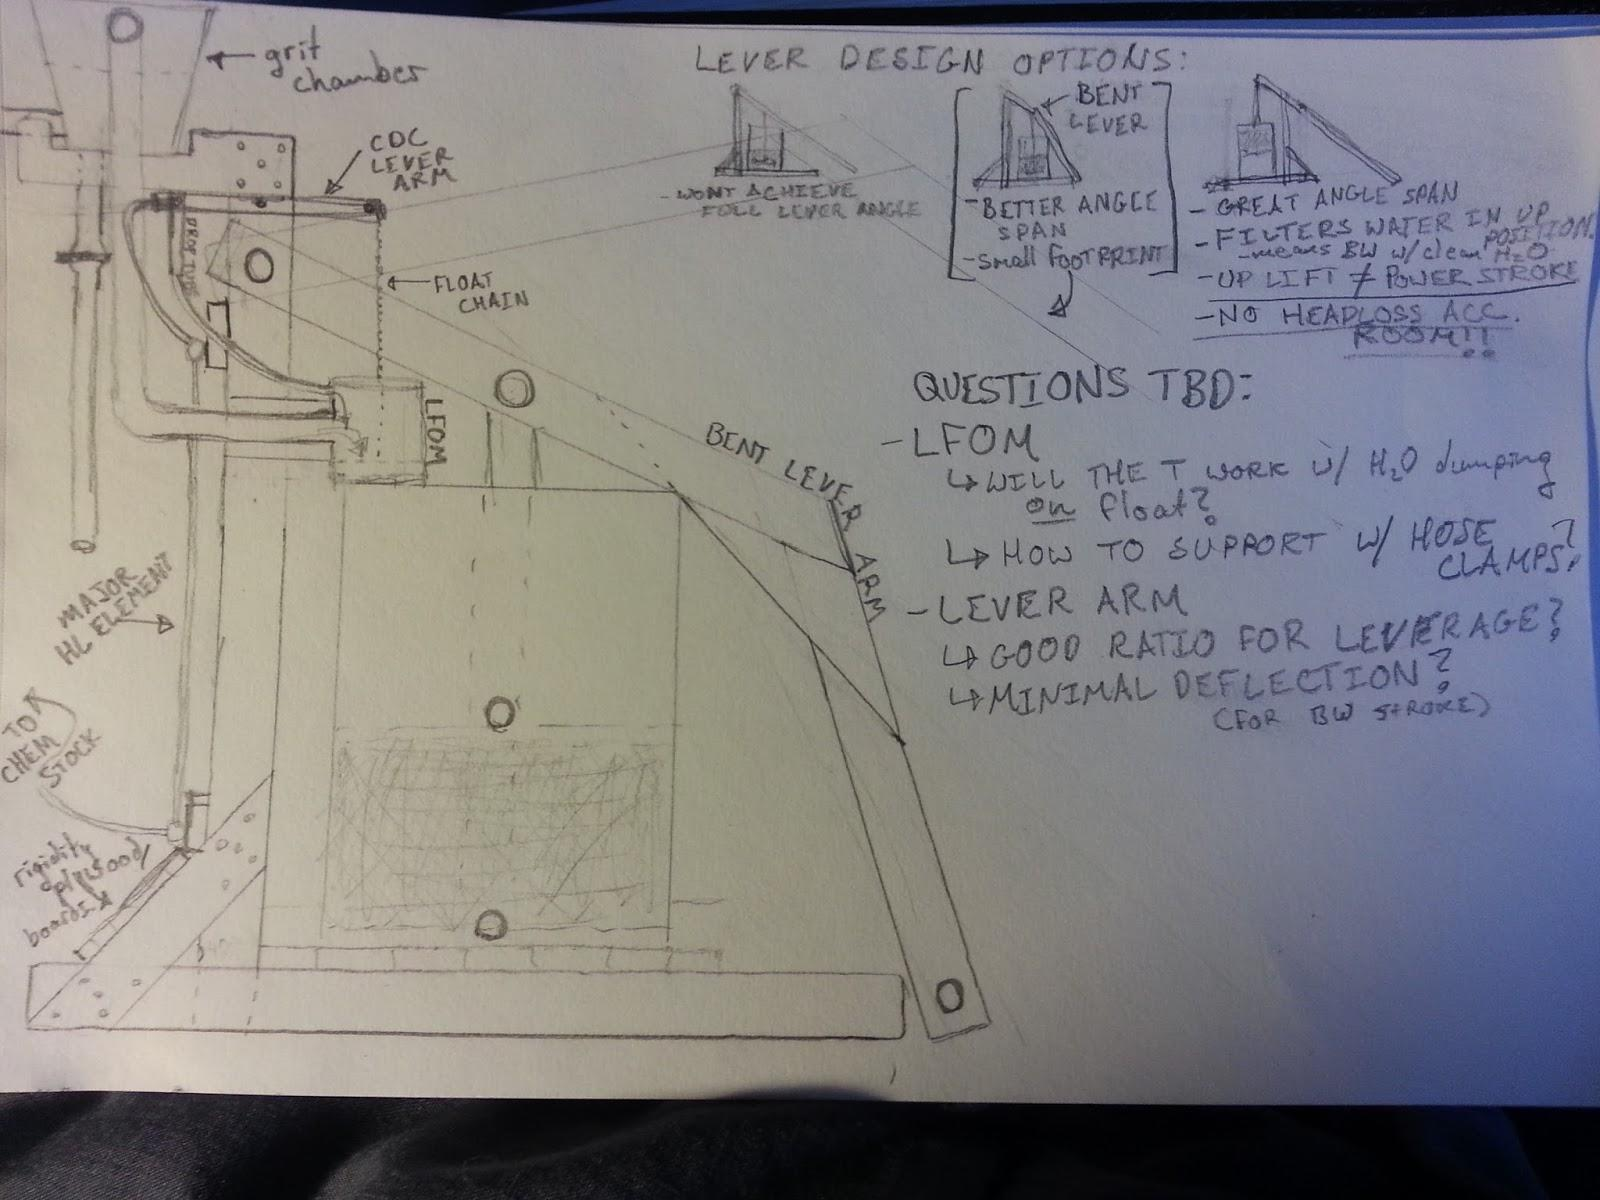 grit
chamber
CDC
LEVER
ARM
DROP TUBE
FLOAT
CHAIN
LFOM
BENT LEVER ARM
MAJOR
HL ELEMENT
TO
CHEM
STOCK
rigidity
plywood/
boards
LEVER DESIGN OPTIONS:
- WONT ACHIEVE
FULL LEVER ANGLE
BENT
LEVER
- BETTER ANGLE
SPAN
- Small FOOTPRINT
- GREAT ANGLE SPAN
- FILTERS WATER IN UP
POSITION.
- means BW w/ clean H2O
- UP LIFT ≠ POWER STROKE
- NO HEADLOSS ACC.
ROOM!!
QUESTIONS TBD:
- LFOM
↳ WILL THE T WORK w/ H2O dumping
on float?
↳ HOW TO SUPPORT w/ HOSE
CLAMPS?
- LEVER ARM
↳ GOOD RATIO FOR LEVERAGE?
↳ MINIMAL DEFLECTION?
(FOR BW STROKE)